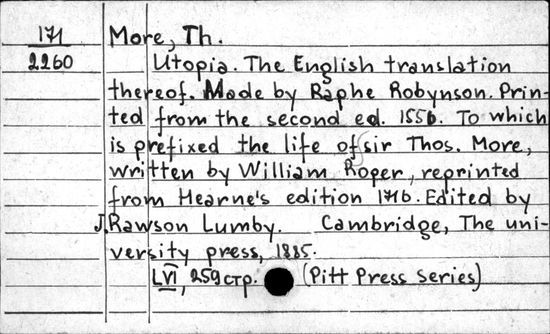 171
2260
More, Th.
Utopia. The English translation
thereof. Made by Raphe Robynson. Prin-
ted from the second ed. 1556. To which
is prefixed the life of sir Thos. More,
written by William Roper, reprinted
from Hearne's edition 1716. Edited by
J. Rawson Lumby. Cambridge, The uni-
versity press, 1885.
LVI, 259 стр. (Pitt Press series)